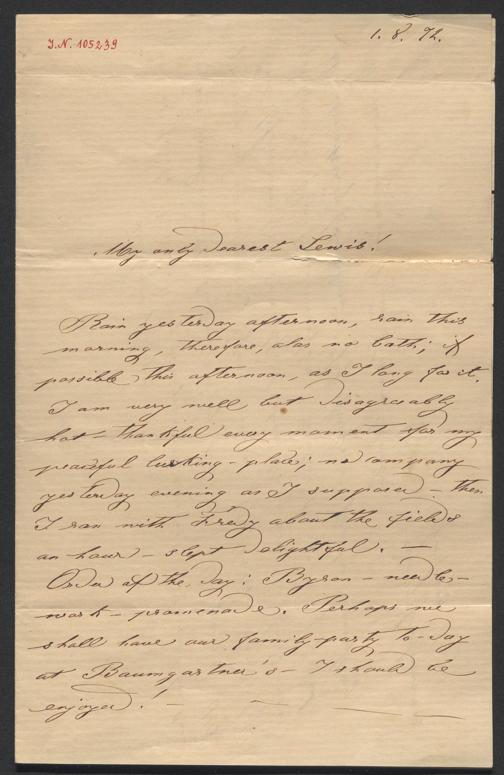 J.N. 105239
1. 8. 92.
My only dearest Lewis!
Rain yesterday afternoon, rain this
morning, therefore, alas no bath; if
possible this afternoon, as I long for it.
I am very well but disagreeably
hot – thankful every moment for my
peaceful lurking-place; no company
yesterday evening as I supposed – then
I ran with Fredy about the fields
an hour – slept delightful. —
Order of the day: Byron – needle-
work – promenade. Perhaps we
shall have our family-party to-day
at Baumgartner's – I should be
enjoyed! – – — —